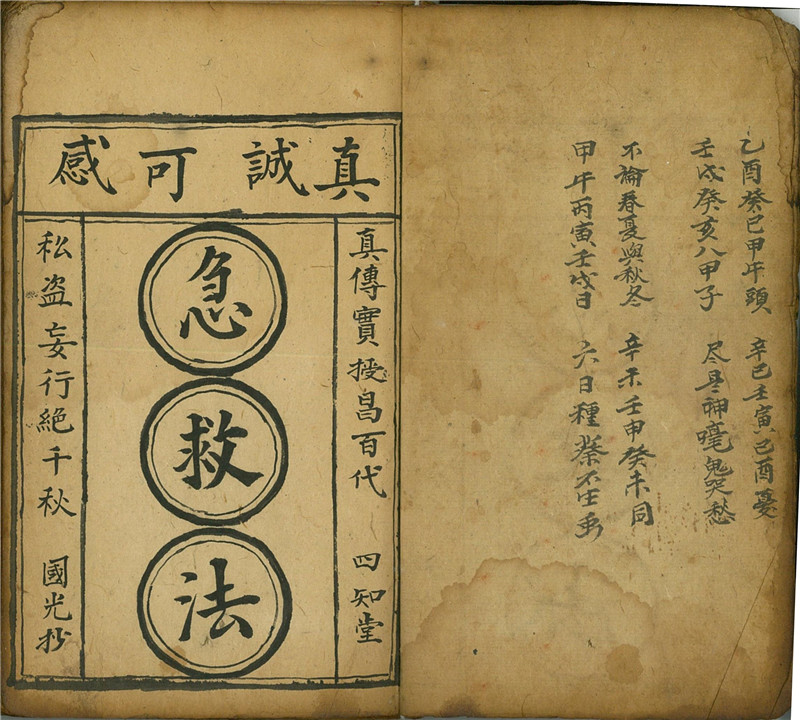 乙酉癸巳甲午頭 辛巳壬寅己酉憂
壬戌癸亥八甲子 尽是神嚎鬼哭愁
不論春夏與秋冬 辛未壬申癸未同
甲午丙寅壬戌日 六日種蔡不生
真誠可感
真傳實授昌百代 四知堂
急救法
私盗妄行絶千秋 國光抄